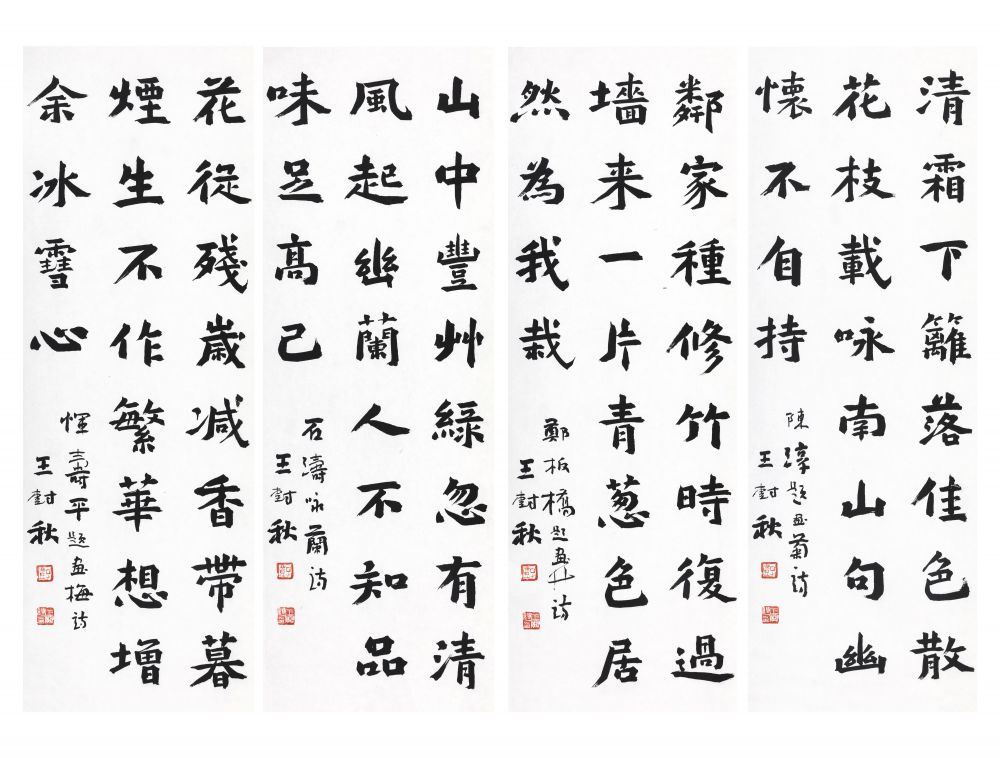 清霜下籬落佳色散
花枝載咏南山句幽
懷不自持
陳淳题画菊诗
王尌秋
鄰家種修竹時復過
墻来一片青葱色居
然為我栽
鄭板橋题画竹诗
王尌秋
山中豐艸綠忽有清
風起幽蘭人不知品
味足高己
石濤咏蘭诗
王尌秋
花從殘歲减香帶暮
煙生不作繁華想增
余冰雪心
惲壽平题画梅诗
王尌秋